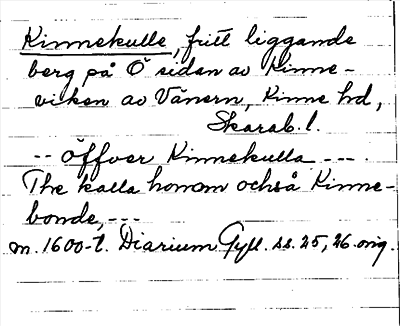 Kinnekulle, fritt liggande
berg på Ö sidan av Kinne-
viken av Vänern, Kinne hd,
Skarab. l.
-- öffver Kinnekulla ---.
The kalla honom ochså Kinne-
bonde, ---
m. 1600-t. Diarium Gyll. ss. 25, 26. orig.